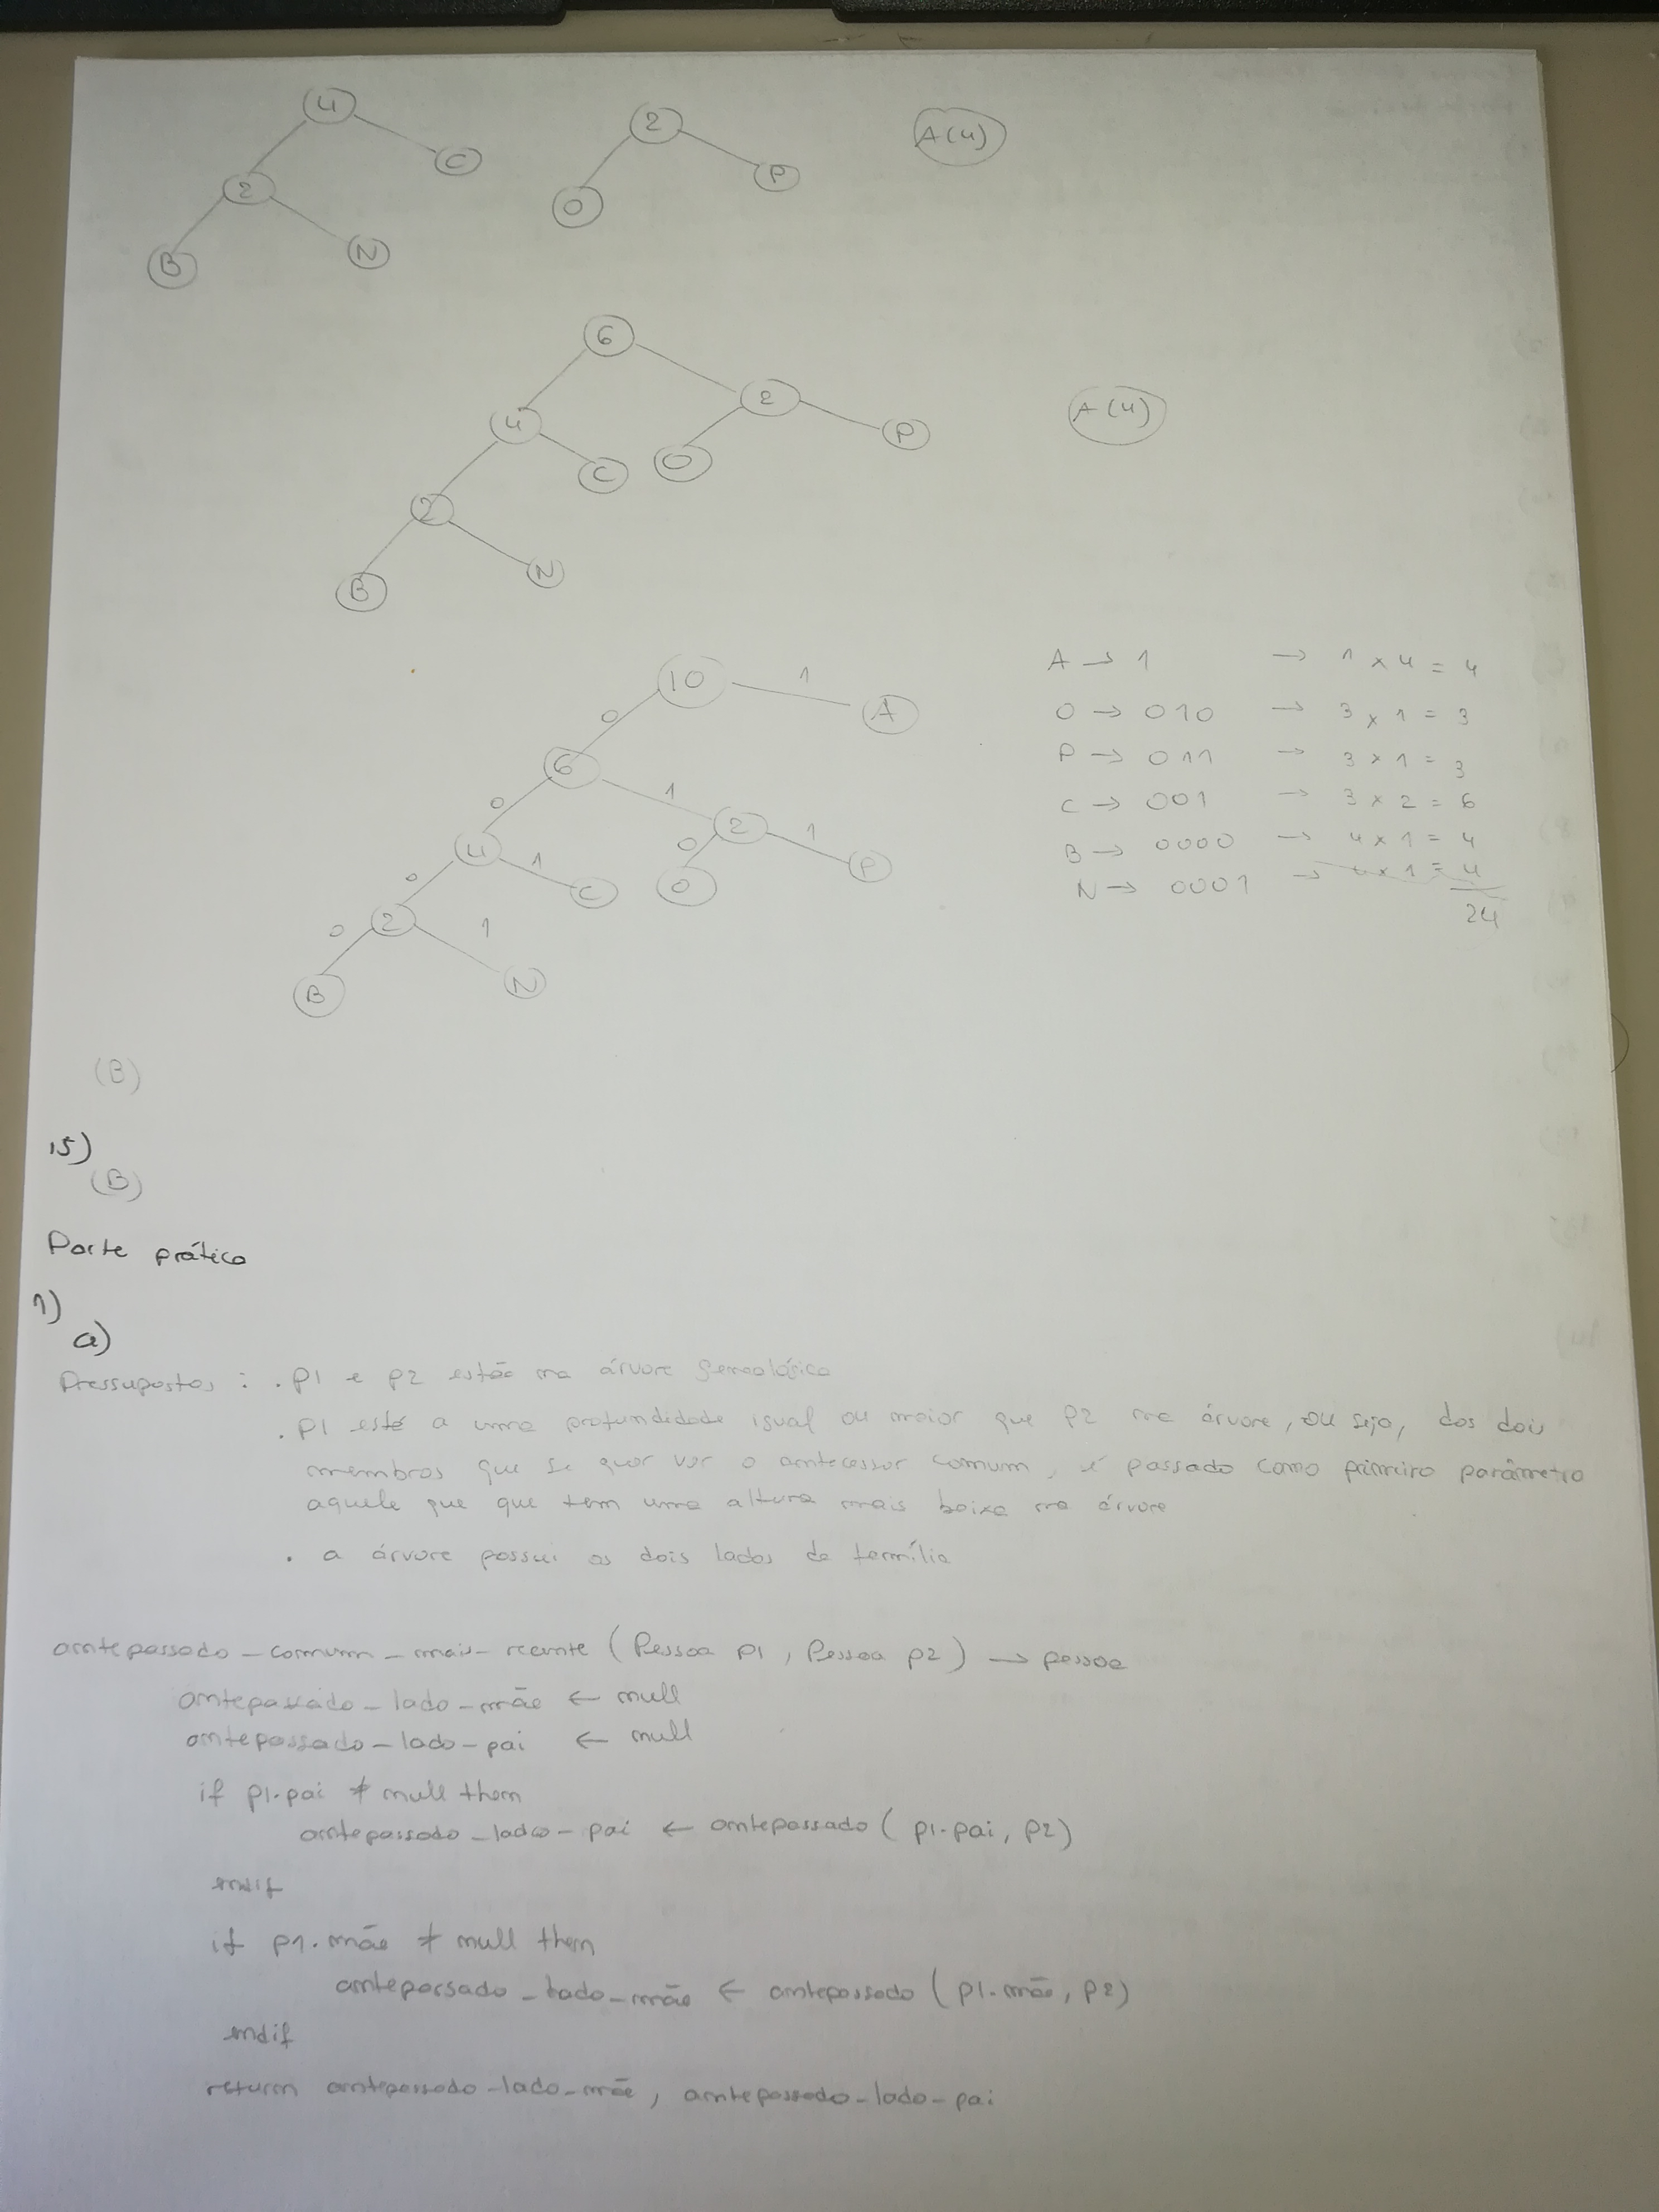 4
2
A(4)
C
P
2
O
B
N
6
2
A(4)
4
P
C
O
2
B
N
10
1
A
0
6
0
1
2
1
4
1
0
P
0
C
O
2
0
1
B
N
A → 1 → 1 x 4 = 4
O → 010 → 3 x 1 = 3
P → 011 → 3 x 1 = 3
C → 001 → 3 x 2 = 6
B → 0000 → 4 x 1 = 4
N → 0001 → 4 x 1 = 4
24
(B)
15)
(B)
Parte prática
1)
a)
Pressupostos : . p1 e p2 estão na árvore genealógica
. p1 está a uma profundidade igual ou maior que p2 na árvore, ou seja, dos dois
membros que se quer ver o antecessor comum, é passado como primeiro parâmetro
aquele que que tem uma altura mais baixa na árvore
. a árvore possui os dois lados da família
antepassado_comum_mais_recente (Pessoa p1, Pessoa p2) → pessoa
antepassado_lado_mãe ← null
antepassado_lado_pai ← null
if p1.pai ≠ null then
antepassado_lado_pai ← antepassado ( p1.pai, p2)
endif
if p1.mãe ≠ null then
antepassado_lado_mãe ← antepassado (p1.mãe, p2)
endif
return antepassado_lado_mãe, antepassado_lado_pai